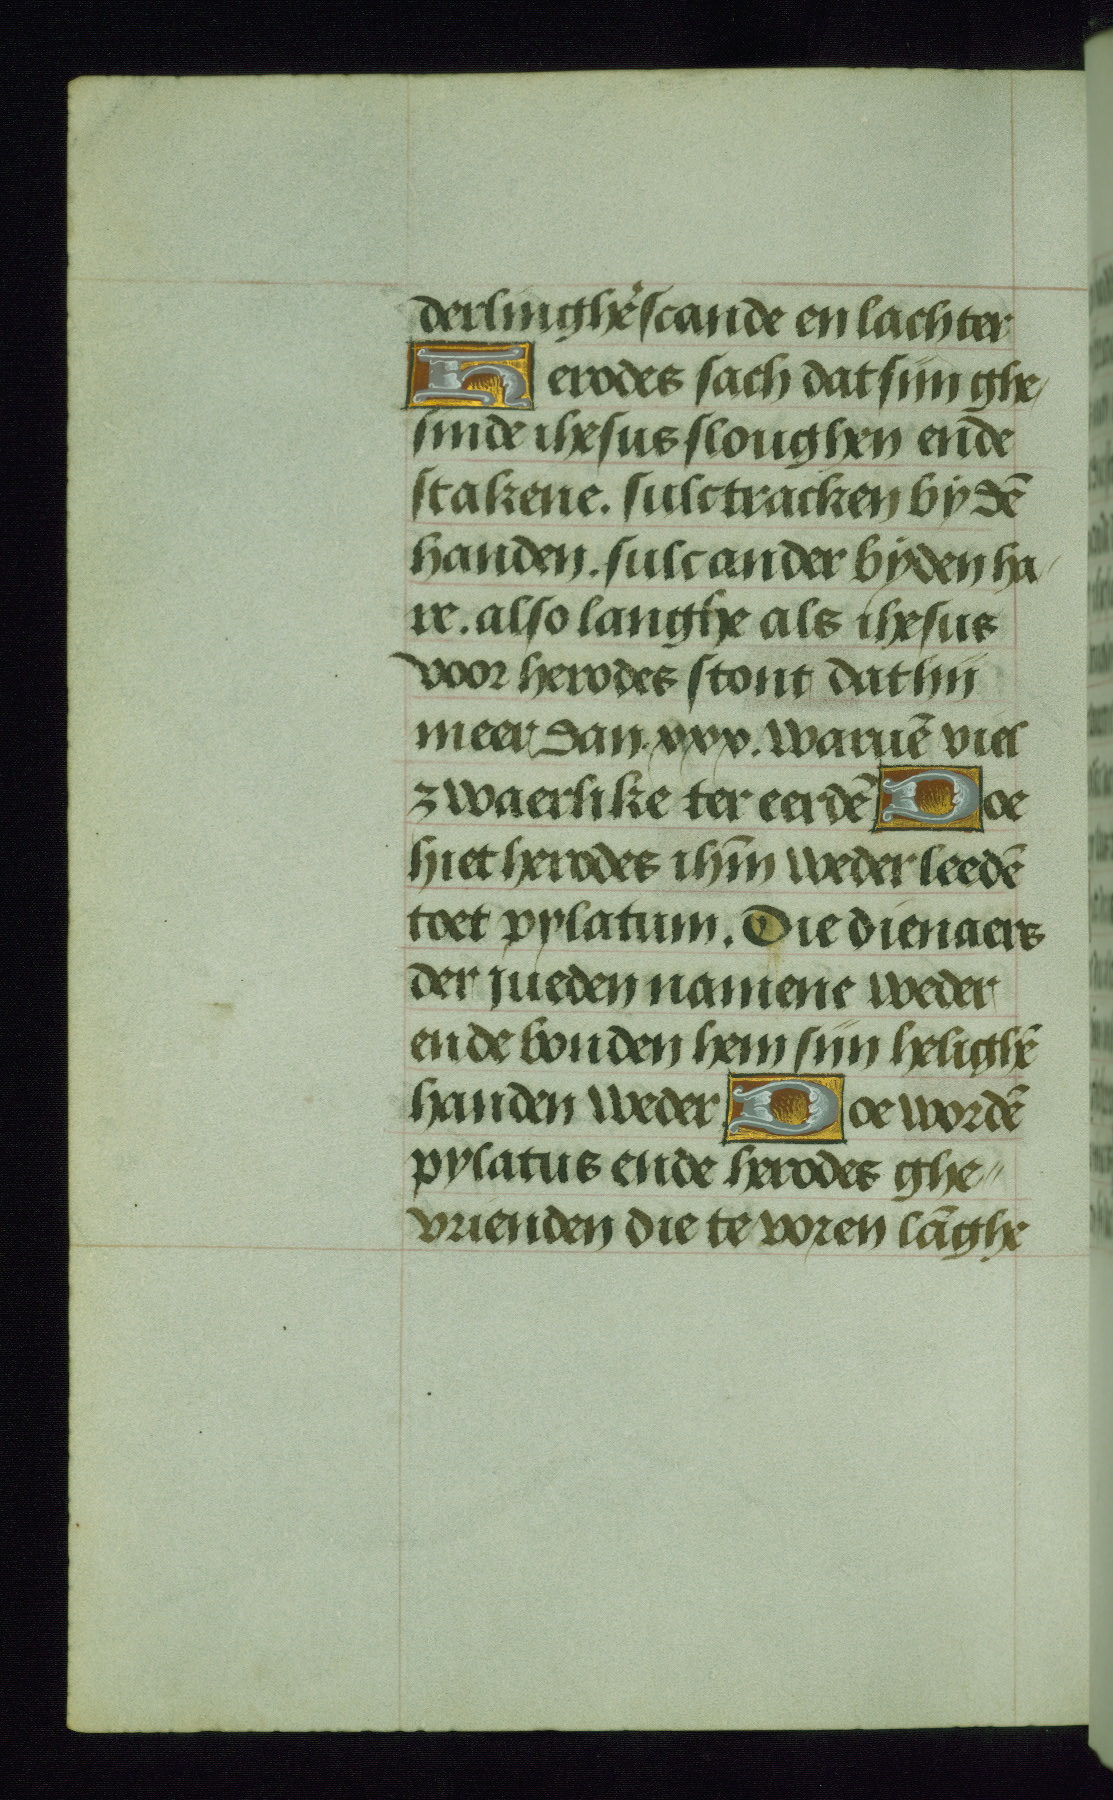 derlinghē scande en lachter
Herodes sach dat sijn ghe/
sinde ihesus sloughen ende
stakene. sulc tracken bij dē
handen. sulc ander bijden ha/
re. also langhe als ihesus
voor herodes stont dat hij
meer dan .xxx. waruē viel
zwaerlike ter eerdē Doe
hiet herodes ihm̄ weder leedē
toet pylatum. Die dienaers
der jueden namene weder
ende bonden hem sijn helighē
handen weder Doe wordē
pylatus ende herodes ghe//
vrienden die te voren lāghe